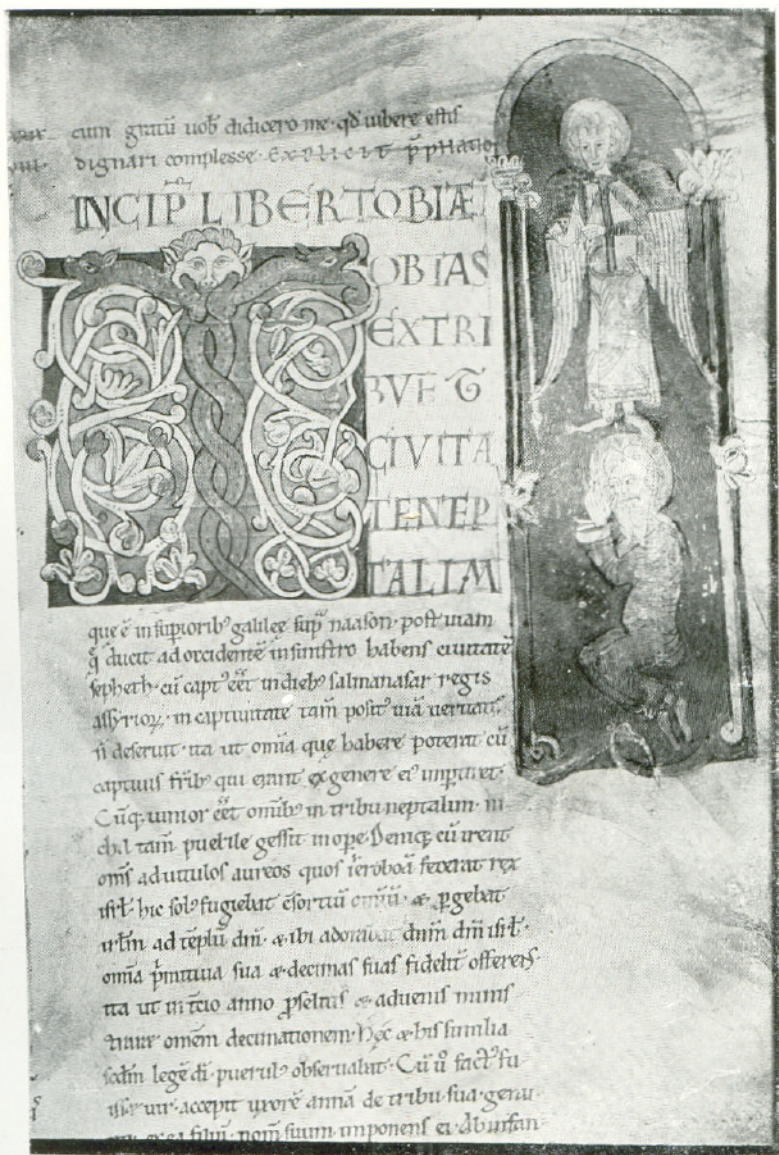 cum gratū uobꝭ didicero me· qđ iubere estis
dignari complesse· Explicit p̄phatio
INCIP̄ LIBER TOBIÆ
TOBIAS
EX TRI
BVET
CIVITA
TE NEP
TALIM
que ē in supiorib' galileę sup̄ naason· post uiam
q̄ ducit ad occidentē in sinistro habens ciuitatē
sepheth· cū capt' eēt in dieb' salmanasar regis
assyrioꝝ· in captiuitate tam̄ posit' uiā ueritatis
n̄ deseruit· ita ut om̄ia que habere poterat cū
captiuis frīb' qui erant ex genere ei' impertiret·
Cūq; iunior eēt omīb' in tribu neptalim· ni
chil tam̄ puerile gessit in ope· Deniq; cū irent
om̄s ad uitulos aureos quos ieroboā fecerat rex
isrł· hic sol' fugiebat c̄sortiū omīū· & pgebat
irłm ad tēplū dnī· & ibi adorabat dnm̄ dm̄ isrł·
omīa p̄mitiua sua & decimas suas fidelit̄ offerens·
ita ut in t̄cio anno pselitis & aduenis minis
traret omēm decimationem· Hęc & his similia
scdm̄ legē dī puerul' obseruabat· Cū ū fact' fu
isset uir· accepit uxorē annā de tribu sua· genu
filiū· nom̄ suum imponens ei· Ab infan